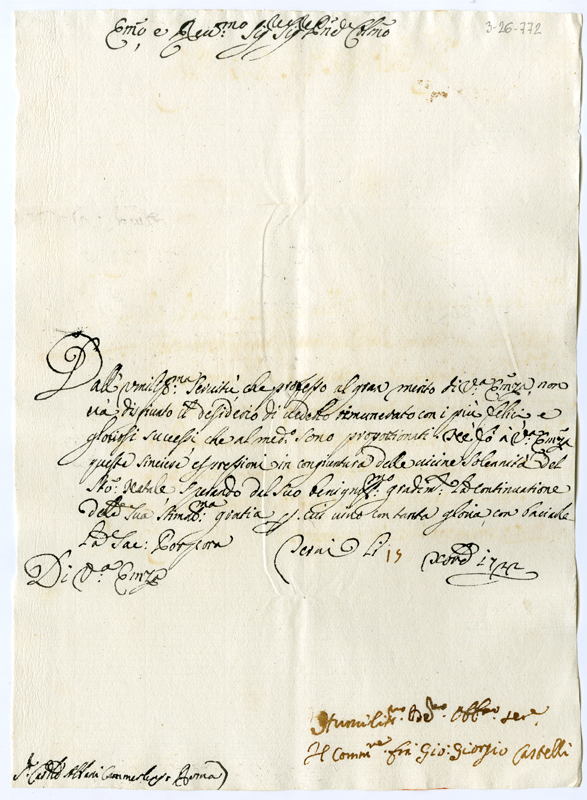 Em̃o, e Reu.mo Sig.re Sig.re Pñe Colmo
3-26-772
Dall' vmiliss.ma Seruitù che professo al gran merito di V.a Em̃za, non
và disgiunto il desiderio di uederlo remunerato con i più felici e
gloriosi successi che al med.o sono proportionati. Ne fò à V.ra Em̃za
queste sincere espressioni in congiuntura delle uicine Solennità del
Sto: Natale sperando dal suo benigniss.o gradim.to la continuatione
della sua stimat.ma gratia p. cui uiuo con tanta gloria, con baciarle
la Sac: Porpora
Di V.a Em̃za
Terni Li 15 Xbre 1722
Humiliss.mo Deu.mo Obb.mo Ser.e
Il Comm.re frà Gio: Giorgio Castelli
S.r Card.l Albani Camerlengo Roma)